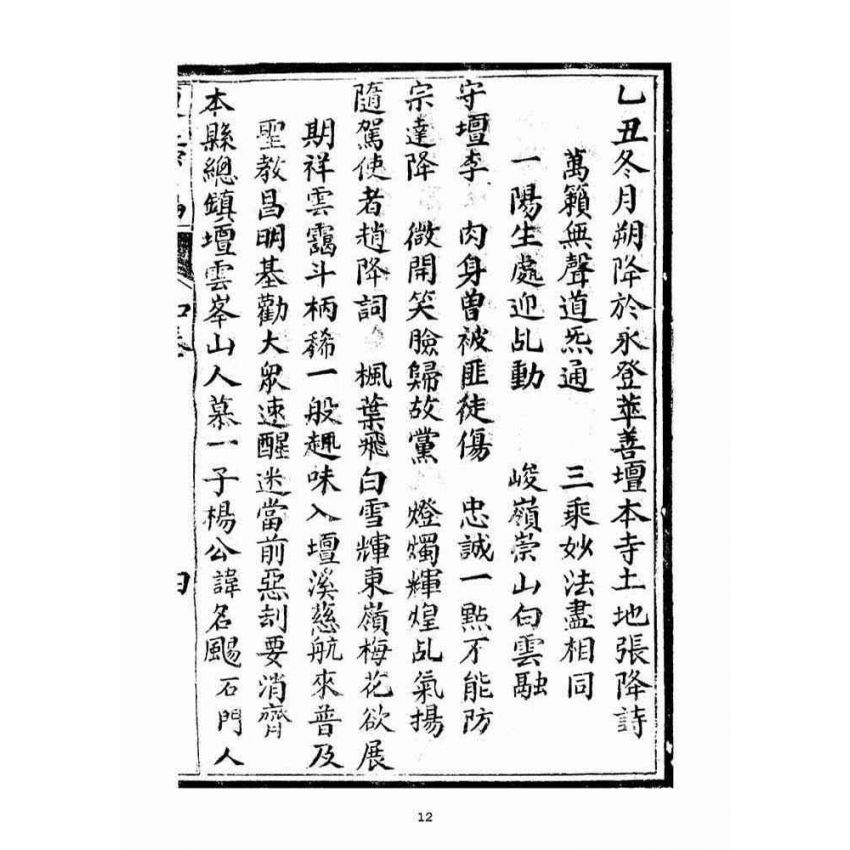 乙丑冬月朔降於永登萃善壇本寺土地張降詩
萬籟無聲道炁通 三乘妙法盡相同
一陽生處迎乩動 峻嶺崇山白雲融
守壇李 肉身曾被匪徒傷 忠誠一點不能防
宗達降 微開笑臉歸故黨 燈燭輝煌乩氣揚
隨駕使者趙降詞 楓葉飛白雪輝東嶺梅花欲展
期祥雲靄斗柄稀一般趣味入壇溪慈航來普及
聖教昌明基勸大眾速醒迷當前惡刦要消齊
本縣總鎮壇雲峯山人慕一子楊公諱名颺 石門人
四
12